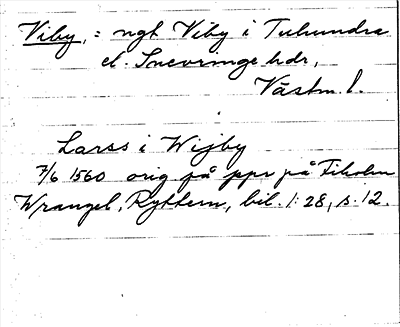 Viby, = ngt Viby i Tuhundra
el. Snevringe hdr,
Västm. l.
Larss i Wijby
7/6 1560 orig på ppr på Fiholm
Wrangel, Ryttern, bil. 1:28, s. 12.